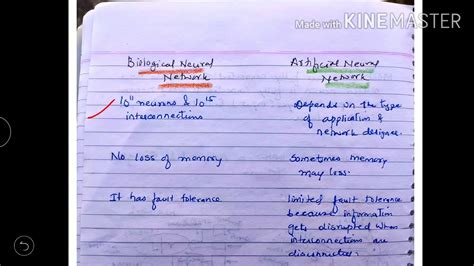 Made with KINEMASTER
Biological Neural
Network
Artificial Neural
Network
10¹¹ neurons & 10¹⁵
interconnections
Depends on the type
of application &
network designer.
No loss of memory
Sometimes memory
may loss.
It has fault tolerance
limited fault tolerence
because information
gets disrupted when
interconnections are
disconnected.